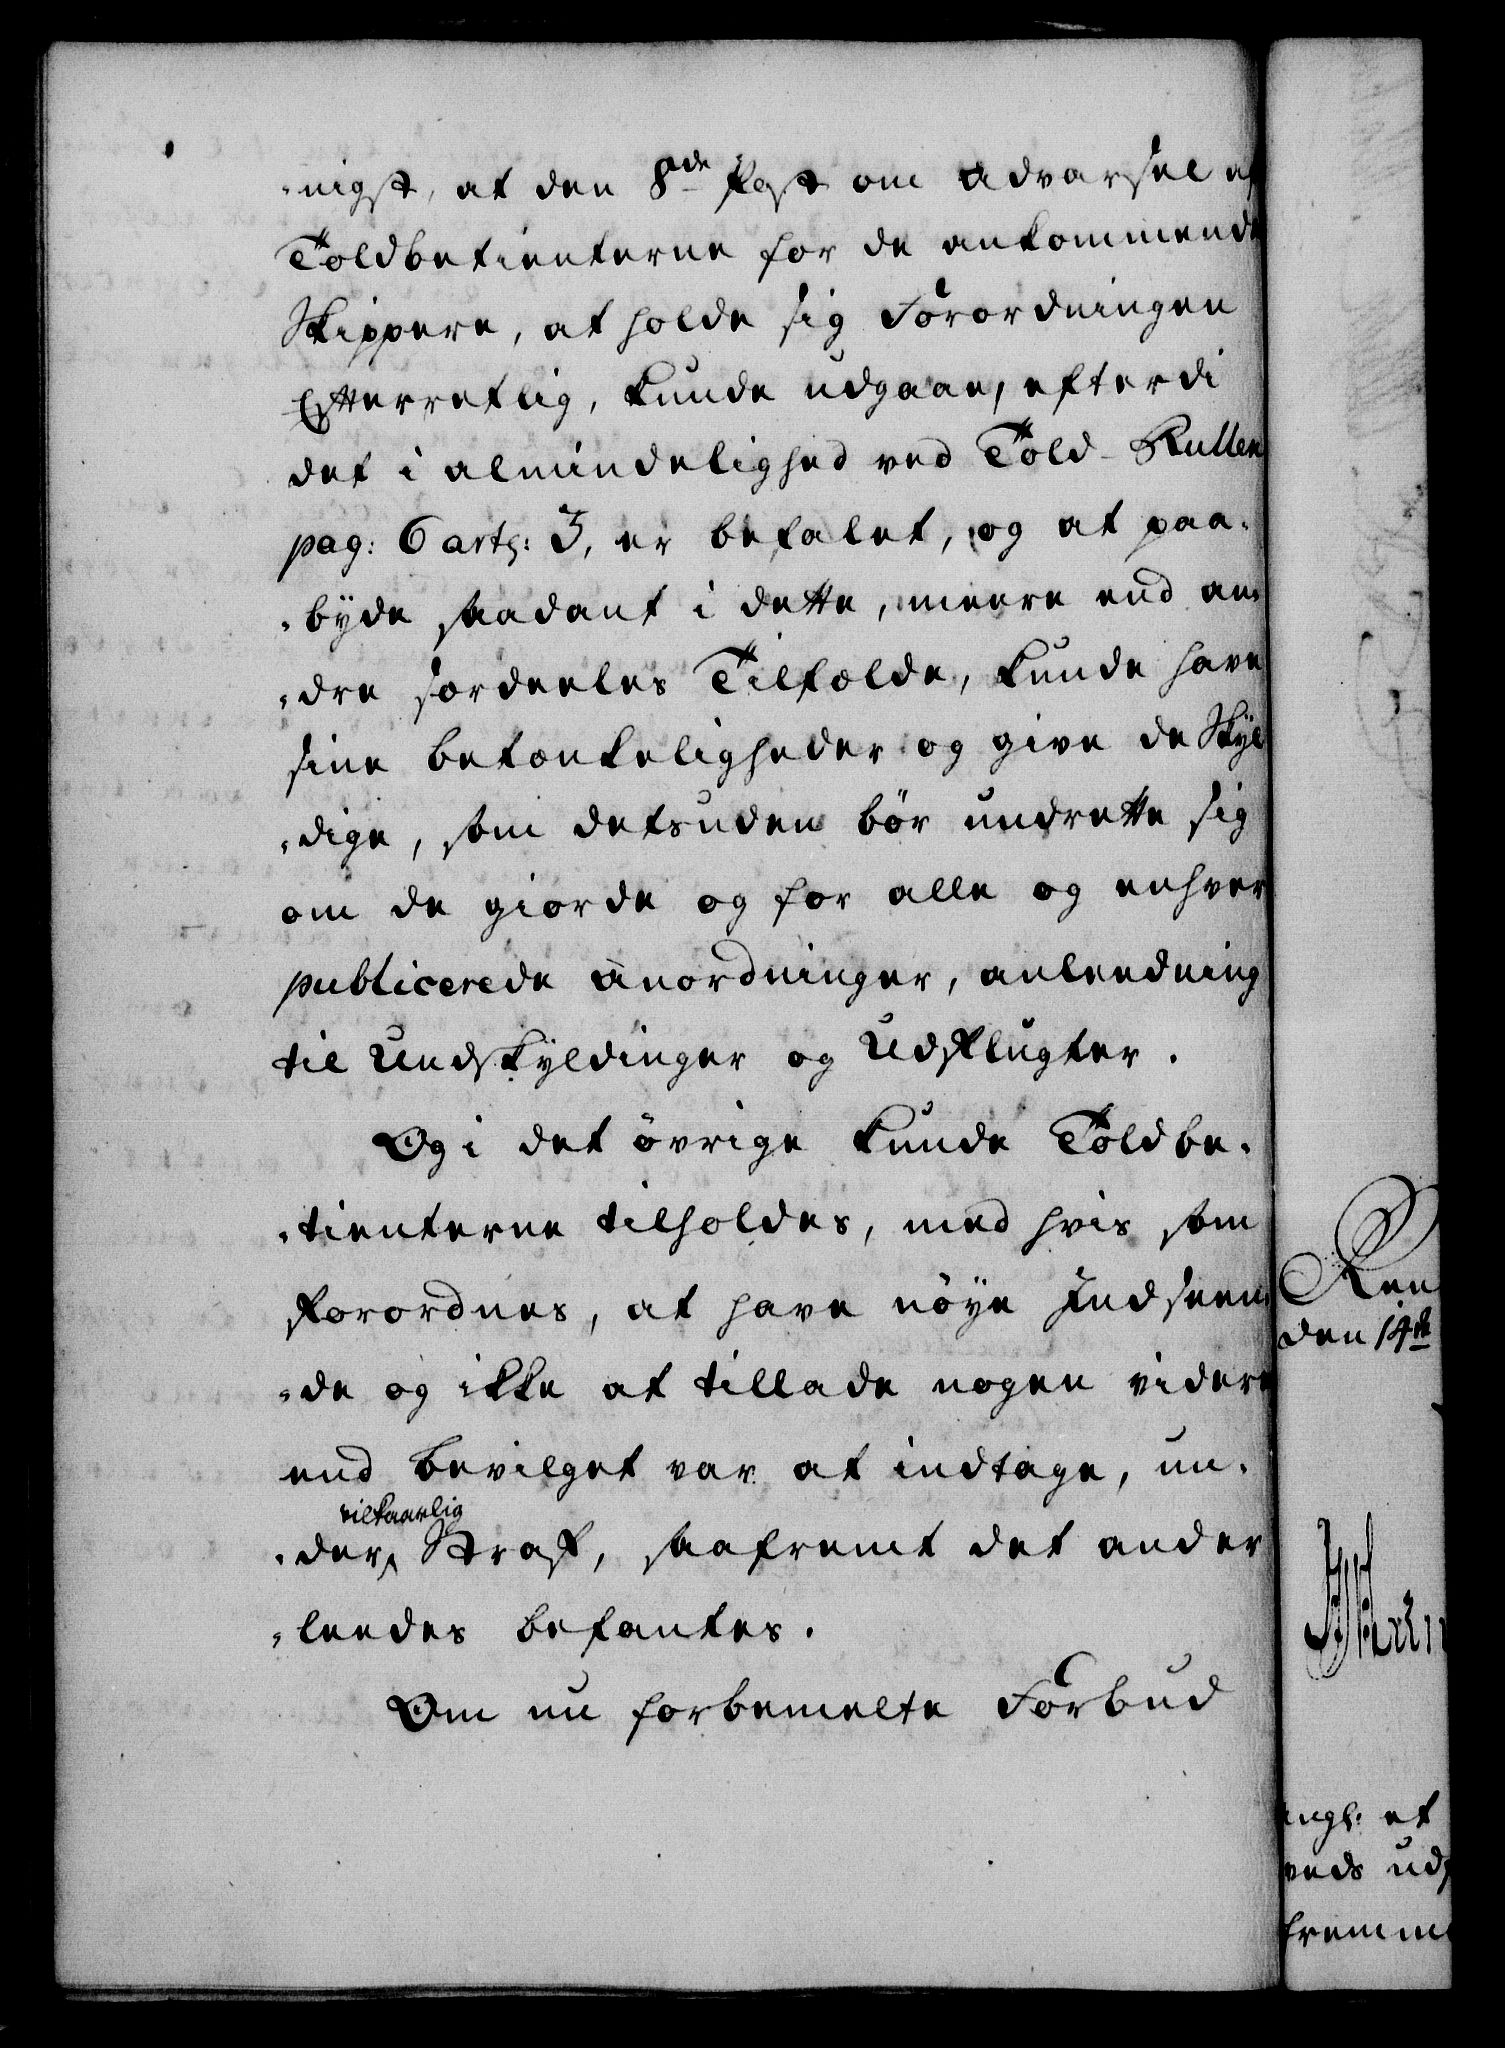 -nigst, at den 8de Post om advarsel af
Toldbetienterne for de ankommende
Skippere, at holde sig Forordningen
Efterretlig, kunde udgaae, efterdi
det i almindelighed ved Told-Rullen
pag: 6 artc: 3, er befalet, og at paa-
-byde saadant i dette, meere end an-
-dre særdeeles Tilfælde, kunde have
sine betænkeligheder og give de Skyl
-dige, som desuden bør undrette sig
om de giorde og for alle og enhver
publicerede anordninger, anleedning
til Undskyldinger og Udflugter.
Og i det øvrige kunde Toldbe-
-tienterne tilholdes, med hvis som
forordnes, at have nøye Indseen-
-de og ikke at tillade nogen videre
end bevilget var at indtage, un-
vilkaarlig
-der Straf, saafremt det ander
-leedes befantes.
Om nu forbemelte Forbud
Ren
den 14de
et
fremm